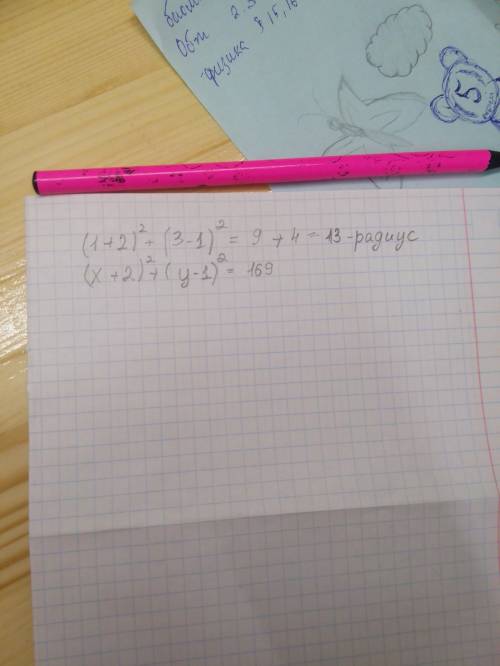 Обж
физика § 15, 16
5
(1+2)² + (3-1)² = 9 + 4 = 13 - радиус
(x+2)² + (y-1)² = 169